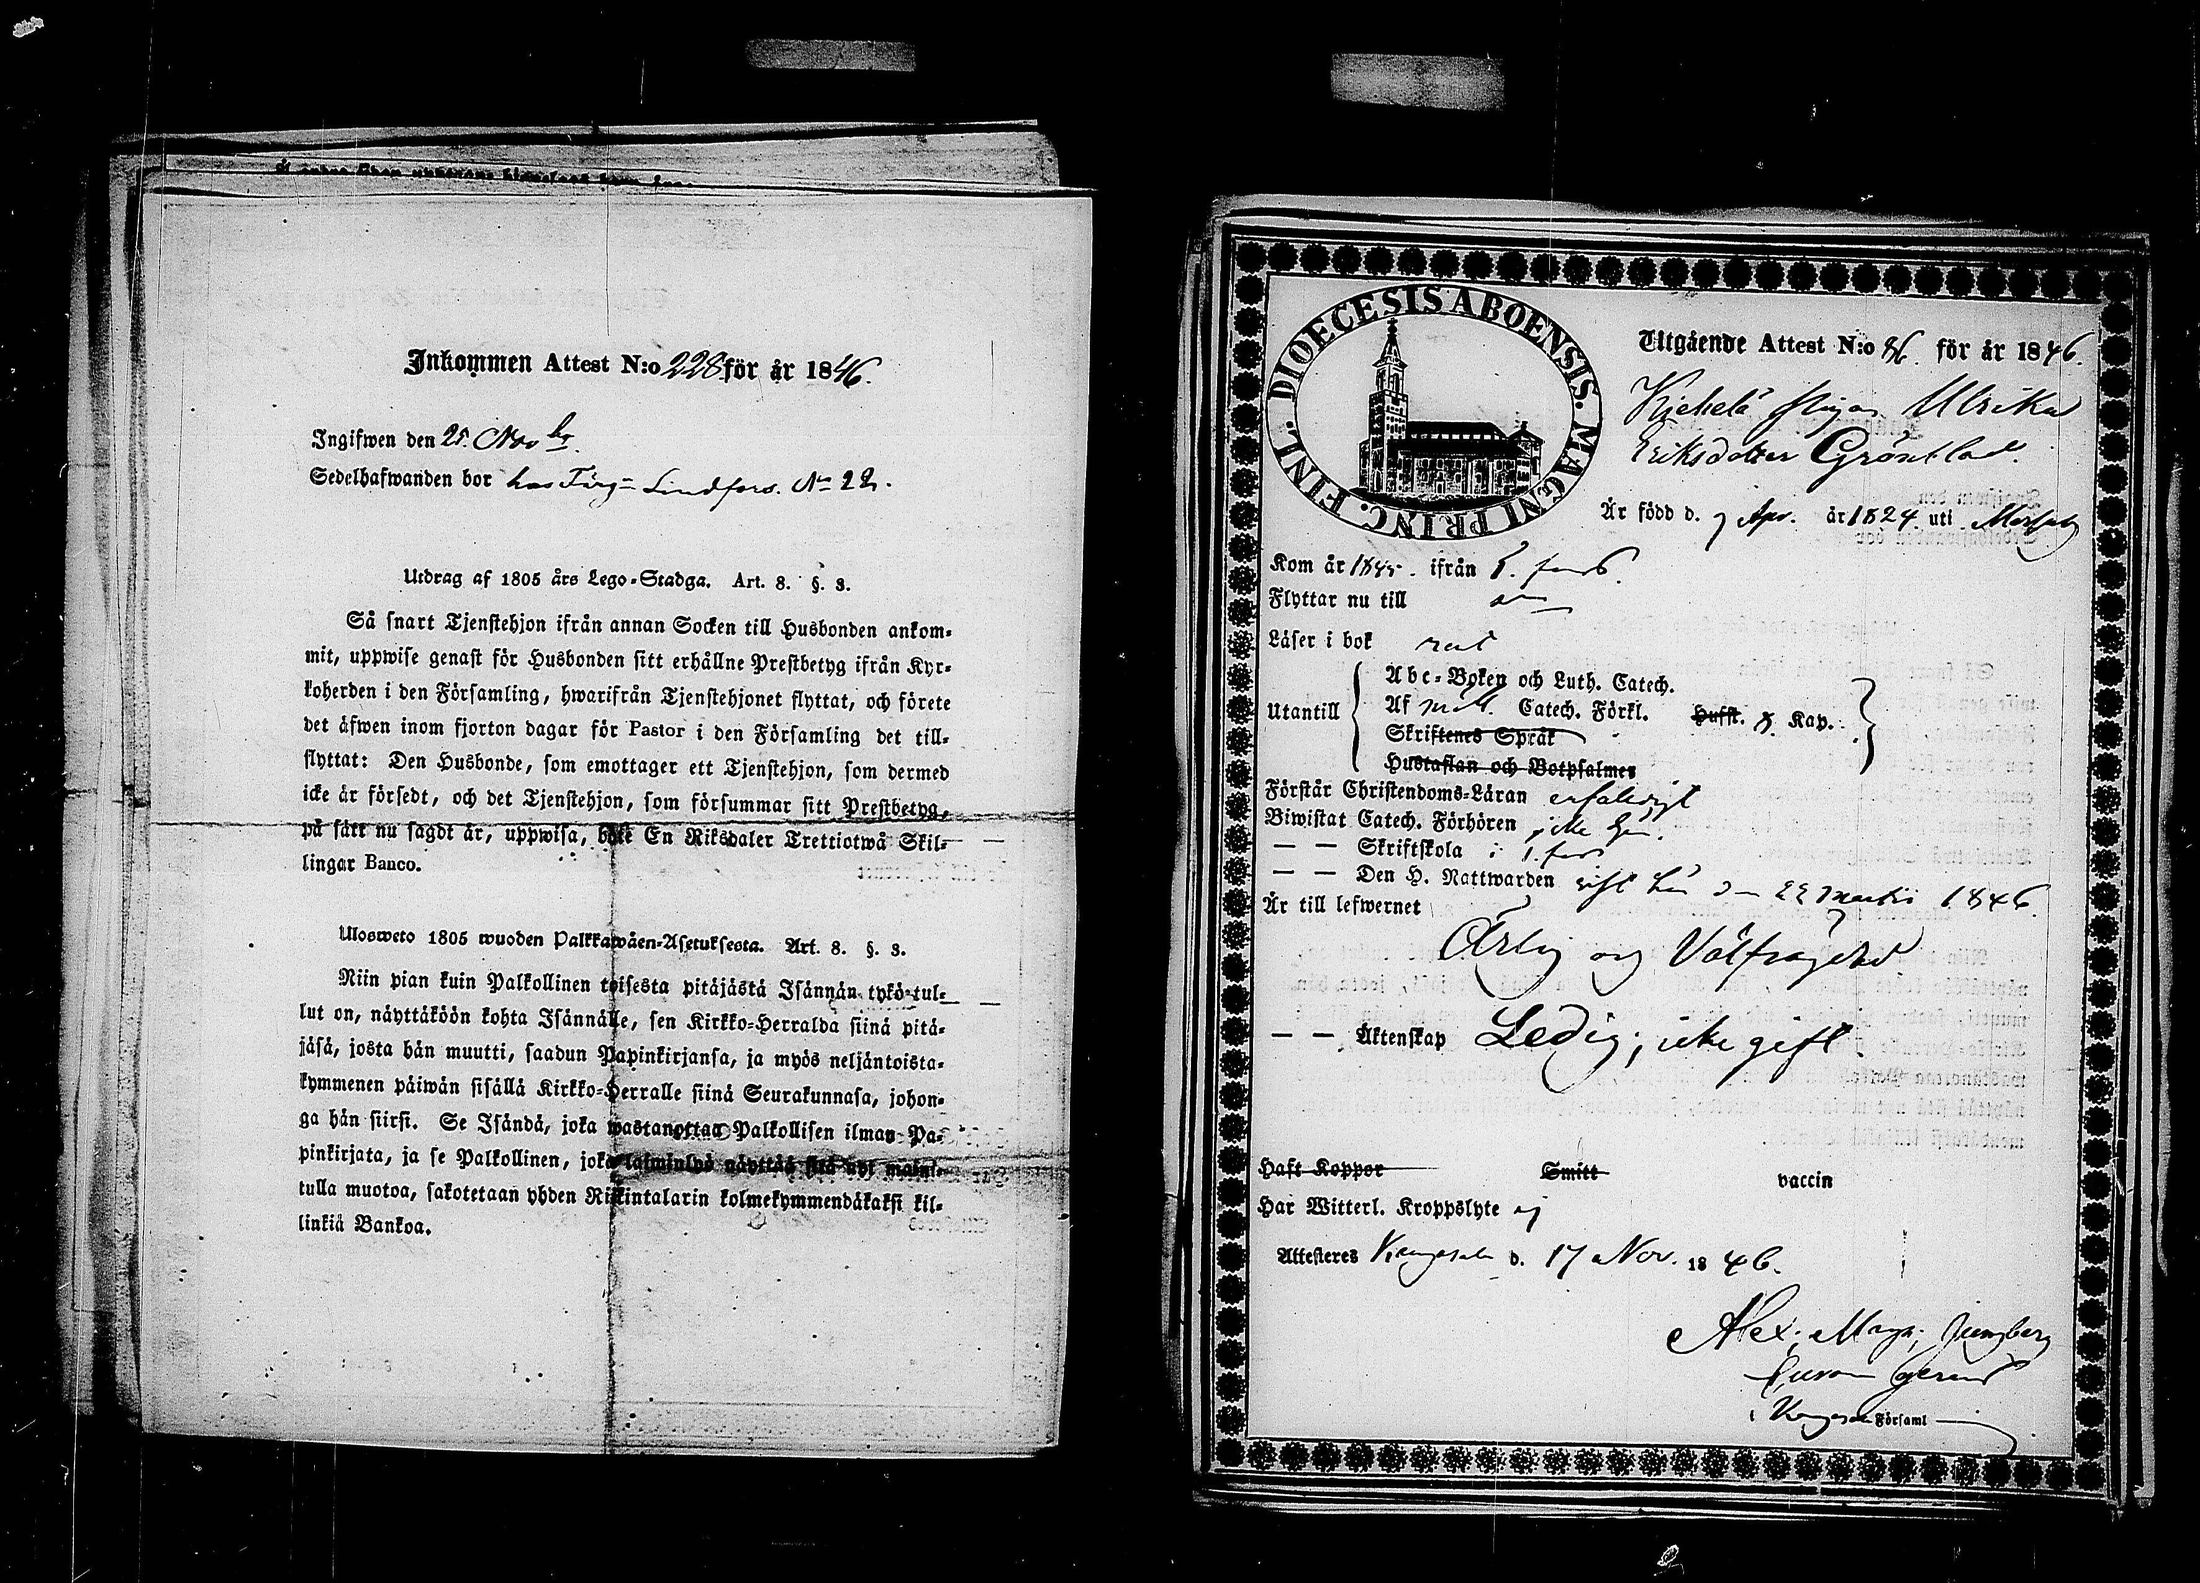 Inkommen Attest N:o 228 för år 1846.
Ingifwen den 25. Novbr.
Sedelhafwanden bor hos Färg= Lindfors. No 22.
Utdrag af 1805 års Lego-Stadga. Art. 8. §. 3.
Så snart Tjenstehjon ifrån annan Socken till Husbonden ankom-
mit, uppwise genast för Husbonden sitt erhållne Prestbetyg ifrån Kyr-
koherden i den Församling, hwarifrån Tjenstehjonet flyttat, och förete
det äfwen inom fjorton dagar för Pastor i den Församling det till-
flyttat: Den Husbonde, som emottager ett Tjenstehjon, som dermed
icke är försedt, och det Tjenstehjon, som försummar sitt Prestbetyg,
på sätt nu sagdt är, uppwisa, böte En Riksdaler Trettiotwå Skil-
lingar Banco.
Ulosweto 1805 wuoden Palkkawäen-Asetuksesta. Art. 8. §. 3.
Niin pian kuin Palkollinen toisesta pitäjästä Isännän tykö tul-
lut on, näyttäköön kohta Isännälle, sen Kirkko-Herralda siinä pitä-
jäsä, josta hän muutti, saadun Papinkirjansa, ja myös neljäntoista-
kymmenen päiwän sisällä Kirkko-Herralle siinä Seurakunnasa, johon-
ga hän siirsi. Se Isändä, joka wastanottaa Palkollisen ilman Pa-
pinkirjata, ja se Palkollinen, joka laiminlyö näyttää sitä nyt mainit-
tulla muotoa, sakotetaan yhden Riikintalarin kolmekymmendäkaksi kil-
linkiä Bankoa.
DIOECESIS ABOENSIS. MAGNI PRINC. FINL.
Utgående Attest N:o 86. för år 1846.
Pigan Ulrika
Eriksdotter Grönblad.
Är född d. 7 Apr. år 1824 uti
Kom år 1845. ifrån
Flyttar nu till
Läser i bok rent
Utantill
Abc-Boken och Luth. Catech.
Af Catech. Förkl. Husst. Kap.
Skriftenes Språk
Hustaflan och Botpsalmer
Förstår Christendoms-Läran
Biwistat Catech. Förhören
— — Skriftskola i
— — Den H. Nattwarden sist här den 22 Martii 1846.
Är till lefwernet
Ärlig och Välfrägdad
— — Äktenskap Ledig; icke gift
Haft Koppor Smitt vaccin
Har Witterl. Kroppslyte ej
Attesteres Kangasala d. 17 Nov. 1846.
Alex: Magn; Ljungberg
i Kangasala Församl